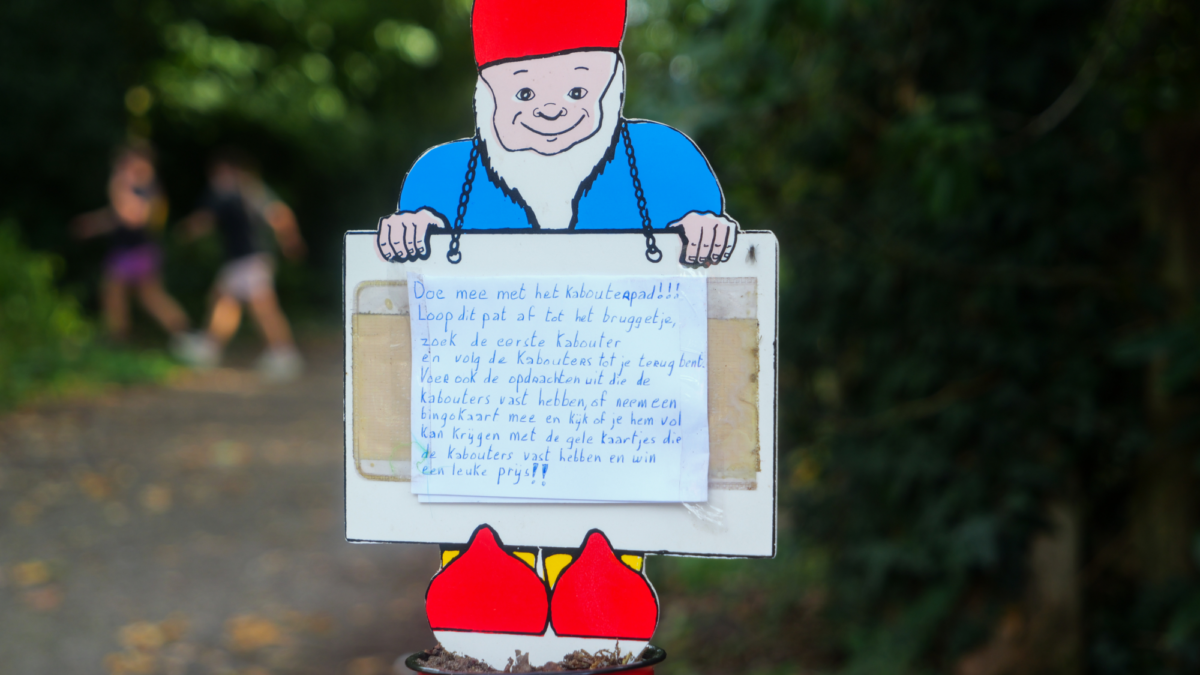 Doe mee met het kabouterpad!!!
Loop dit pat af tot het bruggetje,
zoek de eerste kabouter
en volg de kabouters tot je terug bent.
Voer ook de opdrachten uit die de
kabouters vast hebben, of neem een
bingokaart mee en kijk of je hem vol
kan krijgen met de gele kaartjes die
de kabouters vast hebben en win
een leuke prijs!!